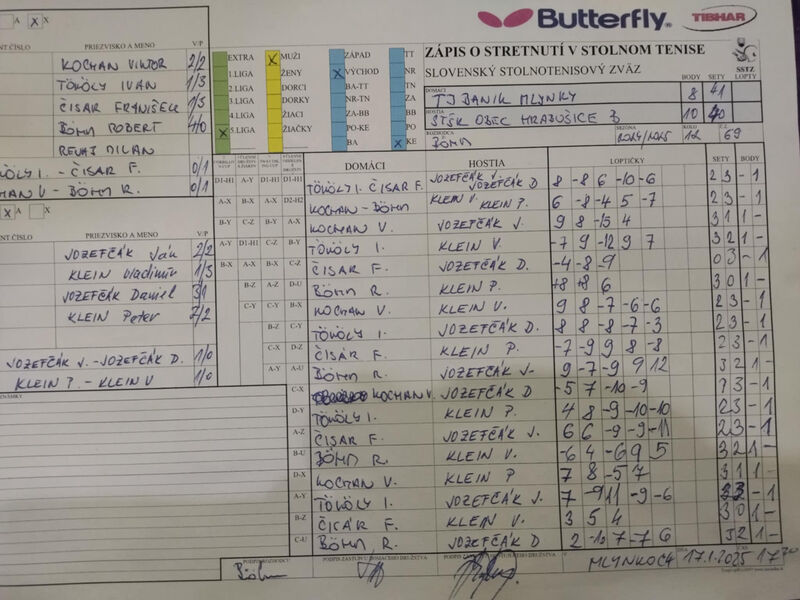 Butterfly
TIBHAR
ZÁPIS O STRETNUTÍ V STOLNOM TENISE
SLOVENSKÝ STOLNOTENISOVÝ ZVÄZ
SSTZ
A X X
ENT ČÍSLO PRIEZVISKO A MENO V/P
KOCHAN VIKTOR 2/2
TÖKÖLY IVAN 1/3
ČISAR FRANIŠEK 1/3
BÖHM ROBERT 4/0
REVAJ MILAN
TÖKÖLY I. - ČISAR F. 0/1
KOCHAN V - BÖHM R. 0/1
X A X
ENT ČÍSLO PRIEZVISKO A MENO V/P
JOZEFČÁK Ján 2/2
KLEIN Vladimír 1/3
JOZEFČÁK Daniel 3/1
KLEIN Peter 2/2
JOZEFČÁK J. - JOZEFČÁK D. 1/0
KLEIN P. - KLEIN V 1/0
EXTRA X MUŽI ZÁPAD TT
1.LIGA ŽENY X VÝCHOD NR
2.LIGA DORCI BA-TT TN
3.LIGA DORKY NR-TN ZA
4.LIGA ŽIACI ZA-BB BB
X 5.LIGA ŽIAČKY PO-KE PO
BA X KE
BODY SETY LOPTY
DOMÁCI TJ BANÍK MLYNKY 8 41
HOSTIA ŠTŠK OBEC HRABUŠICE B 10 40
ROZHODCA BÖHM SEZÓNA 2024/2025 KOLO 12 69
DOMÁCI HOSTIA LOPTIČKY SETY BODY
D1-H1 A-Y D1-H1 D1-H1 TÖKÖLY I. ČISAR F. JOZEFČÁK J. JOZEFČÁK D 8 -8 6 -10 -6 2 3 - 1
A-X B-X A-X D2-H2 KOCHAN - BÖHM KLEIN V KLEIN P. 6 -8 -4 5 -7 2 3 - 1
B-Y C-Z B-Y A-X KOCHAN V. JOZEFČÁK J. 9 8 -15 4 3 1 1 -
A-Y D1-H1 C-Z B-Y TÖKÖLY I. KLEIN V. -7 9 -12 9 7 3 2 1 -
B-X A-X B-X C-Z ČISAR F. JOZEFČÁK D. -4 -8 -9 0 3 - 1
B-Z A-Z D-U BÖHM R. KLEIN P. +8 +8 6 3 0 1 -
C-Y C-Y B-X KOCHAN V. KLEIN V. 9 8 -7 -6 -6 2 3 - 1
B-Z C-Y TÖKÖLY I. JOZEFČÁK D. 8 8 -8 -7 -3 2 3 - 1
C-X D-Z ČISAR F. KLEIN P. -7 -9 9 8 -8 2 3 - 1
A-Y A-U BÖHM R. JOZEFČÁK J. 9 -7 -9 9 12 3 2 1 -
C-X KOCHAN V. JOZEFČÁK D -5 7 -10 -9 1 3 - 1
D-Y TÖKÖLY I. KLEIN P. 4 8 -9 -10 -10 2 3 - 1
A-Z ČISAR F. JOZEFČÁK J. 6 6 -9 -9 -11 2 3 - 1
B-U BÖHM R. KLEIN V. -6 4 -6 9 5 3 2 1 -
D-X KOCHAN V. KLEIN P 7 8 -5 7 3 1 1 -
A-Y TÖKÖLY I. JOZEFČÁK J. 7 -9 11 -9 -6 2 3 - 1
B-Z ČISÁR F. KLEIN V. 3 5 4 3 0 1 -
C-U BÖHM R. JOZEFČÁK D 2 -10 -7 -7 6 3 2 1 -
PODPIS ROZHODCU PODPIS ZÁSTUPCU DOMÁCEHO DRUŽSTVA
Böhm
MLYNKOCH 17.1.2025 17:00